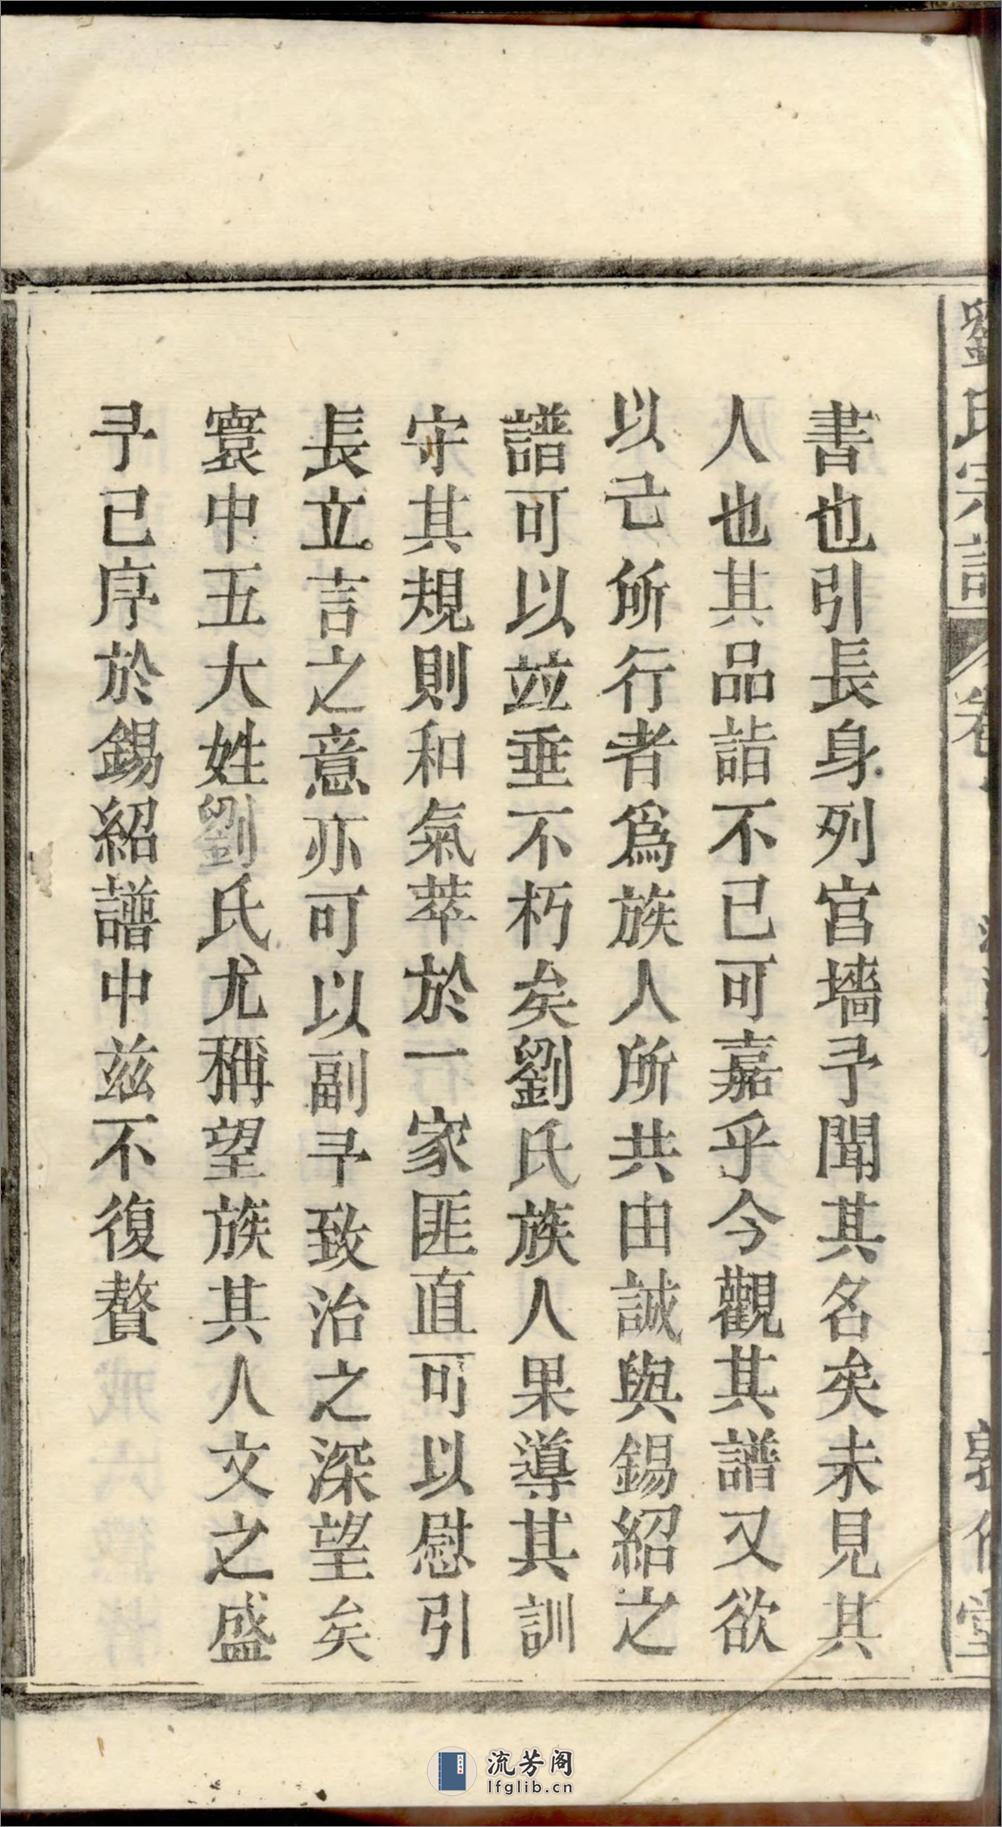 書也引長身列宫墻予聞其名矣未見其
人也其品詣不已可嘉乎今觀其譜又欲
以己所行者爲族人所共由誠與錫紹之
譜可以竝垂不朽矣劉氏族人果導其訓
守其規則和氣萃於一家匪直可以慰引
長立言之意亦可以副予致治之深望矣
寰中五大姓劉氏尤稱望族其人文之盛
予已序於錫紹譜中兹不復贅
劉氏宗譜
卷
敦倫堂
流芳阁
lfglib.cn